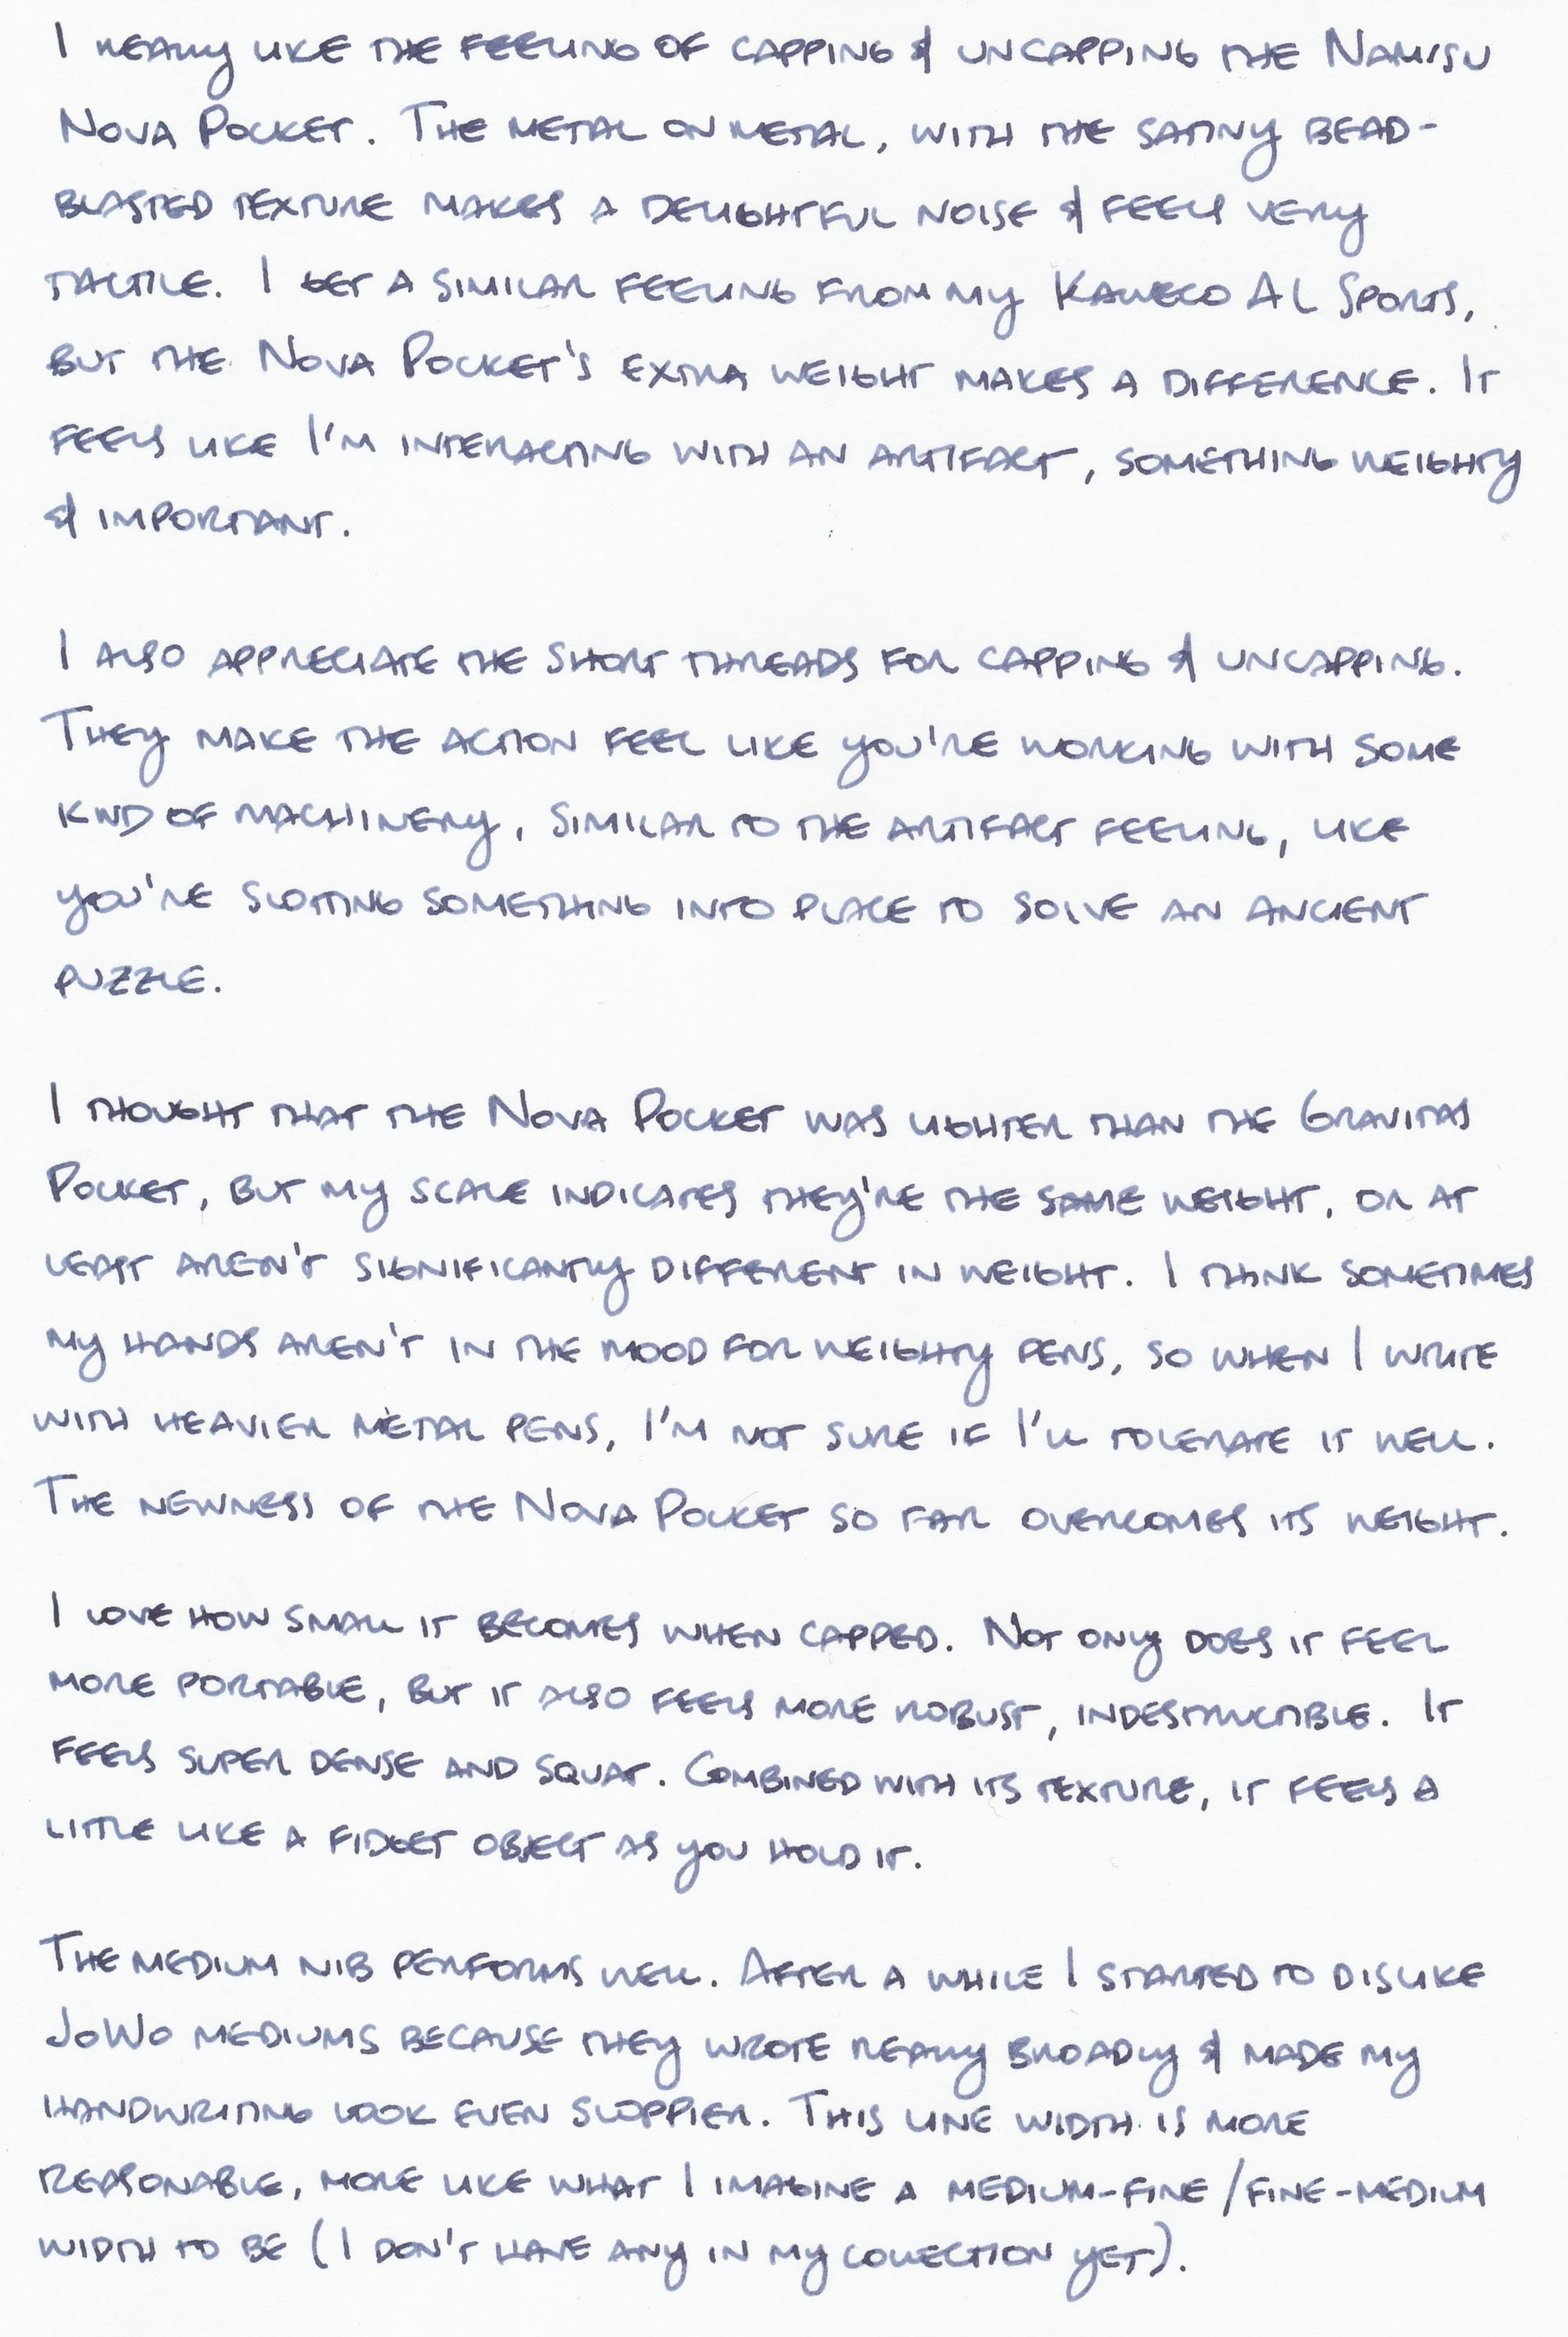 I really like the feeling of capping & uncapping the Namisu
Nova Pocket. The metal on metal, with the satiny bead-
blasted texture makes a delightful noise & feels very
tactile. I get a similar feeling from my Kaweco AL Sports,
but the Nova Pocket's extra weight makes a difference. It
feels like I'm interacting with an artifact, something weighty
& important.
I also appreciate the short threads for capping & uncapping.
They make the action feel like you're working with some
kind of machinery, similar to the artifact feeling, like
you're slotting something into place to solve an ancient
puzzle.
I thought that the Nova Pocket was lighter than the Gravitas
Pocket, but my scale indicates they're the same weight, or at
least aren't significantly different in weight. I think sometimes
my hands aren't in the mood for weighty pens, so when I write
with heavier metal pens, I'm not sure if I'll tolerate it well.
The newness of the Nova Pocket so far overcomes its weight.
I love how small it becomes when capped. Not only does it feel
more portable, but it also feels more robust, indestructible. It
feels super dense and squat. Combined with its texture, it feels a
little like a fidget object as you hold it.
The medium nib performs well. After a while I started to dislike
JoWo mediums because they wrote really broadly & made my
handwriting look even sloppier. This line width is more
reasonable, more like what I imagine a medium-fine/fine-medium
width to be (I don't have any in my collection yet).